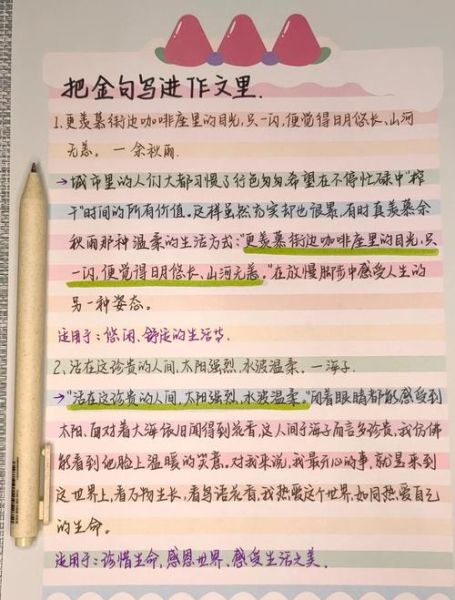 把金句写进作文里.
1.更羡慕街边咖啡座里的目光,只一闪,便觉得日月悠长、山河
无恙。 一余秋雨.
→城市里的人们大都习惯了行色匆匆,希望在不停忙碌中“榨
干”时间的所有价值。这样虽然充实却也很累,有时真羡慕余
秋雨那种温柔的生活方式:“更羡慕街边咖啡座里的目光,只
一闪,便觉得日月悠长、山河无恙。”在放慢脚步中感受人生的
另一种姿态。
适用于:悠闲、舒适的生活等.
2、活在这珍贵的人间,太阳强烈,水波温柔. 一海子.
→“活在这珍贵的人间,太阳强烈,水波温柔.”闭着眼睛都能感受到
太阳.面对着大海依旧闻得到花香,这人间于海子而言多珍贵,我仿佛
能看到他脸上温暖的笑意.对我来说,我最开心的事,就是来到
这世上,看万物生长,看鸟语花香,我热爱这个世界,如同热爱自己
的生命。
适用于:珍惜生命,感恩世界、感受生活之美.